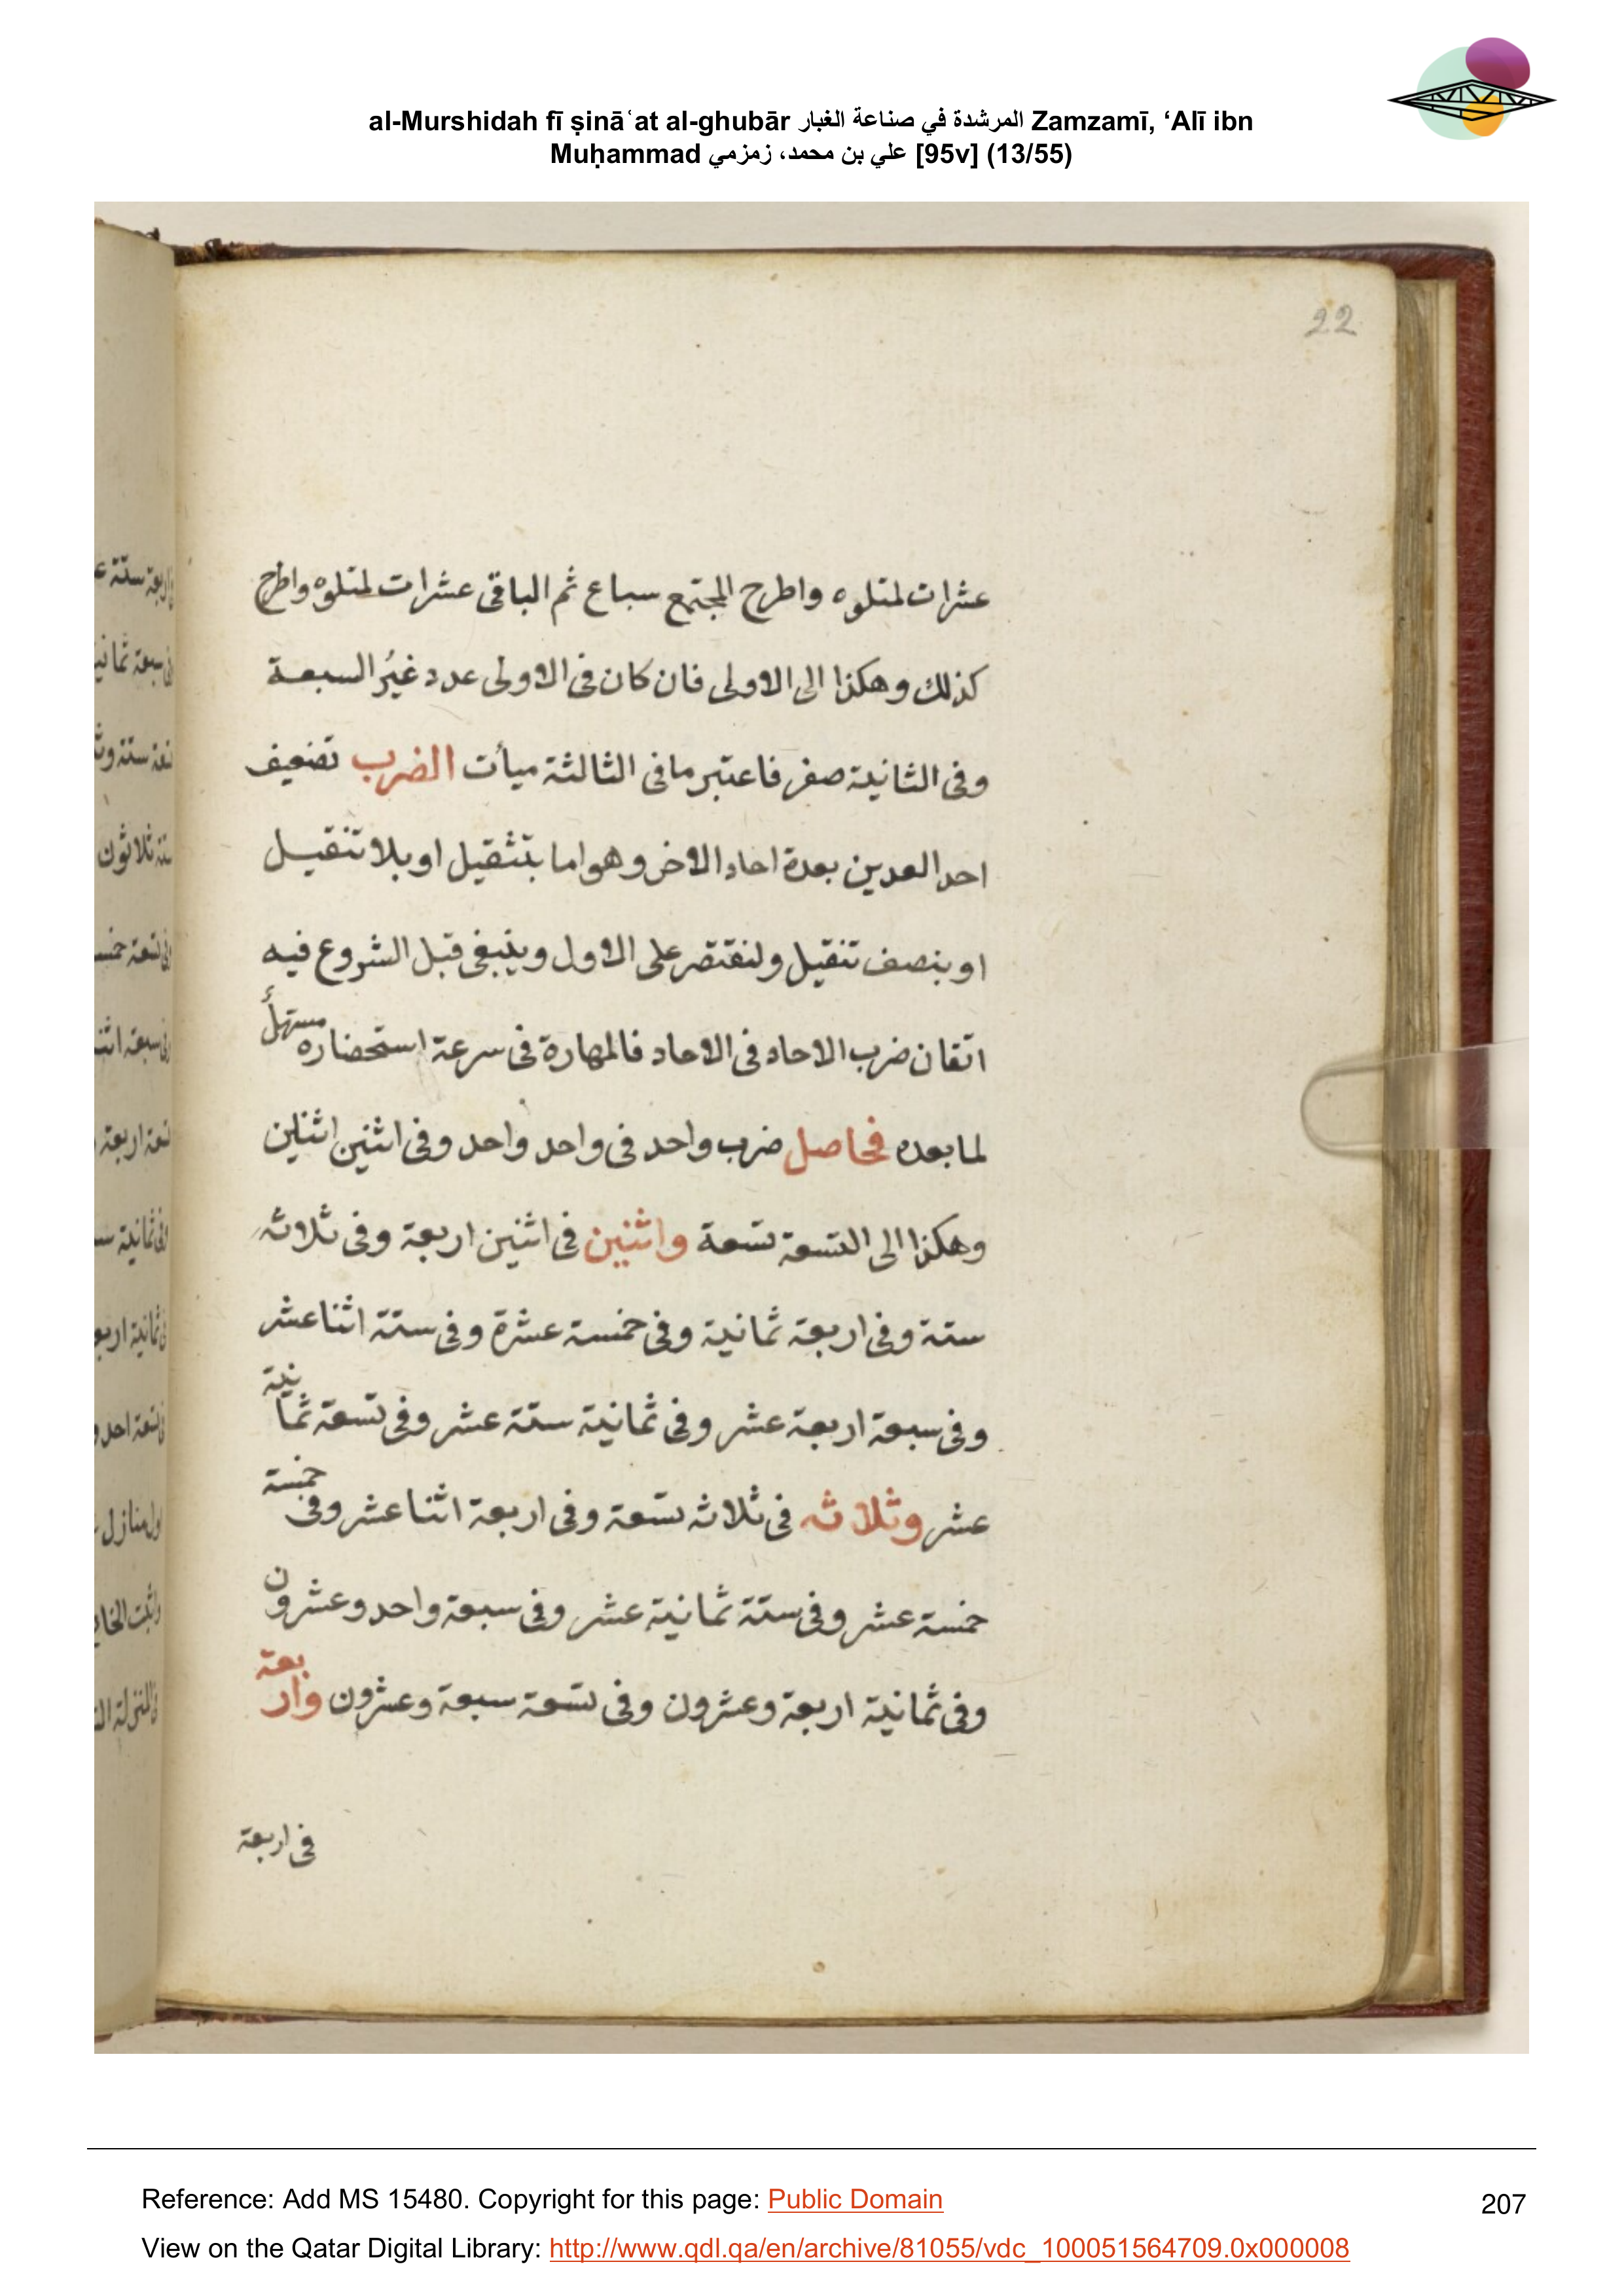 al-Murshidah fī ṣināʿat al-ghubār المرشدة في صناعة الغبار Zamzamī, ‘Alī ibn
Muḥammad علي بن محمد، زمزمي [95v] (13/55)
22
عشرات لمتلوه واطرح المجتمع سباع ثم الباقى عشرات لمتلوه واطرح
كذلك وهكذا الى الاولى فان كان فى الاولى عدد غيُر السبعة
وفى الثانية صفر فاعتبر مافى الثالثة ميأت الضرب تضعيف
احد العددين بعدة احاد الاخر وهو اما بتثقيل او بلا تنقيل
او بنصف تنقيل ولنقتصر على الاول وينبغى قبل الشروع فيه
اتقان ضرب الاحاد فى الاحاد فالمهارة فى سرعة استحضاره مسهلٌ
لما بعده فحاصل ضرب واحد فى واحد واحد وفى اثنين اثنين
وهكذا الى التسعة تسعة واثنين فى اثنين اربعة وفى ثلاثه
ستة وفى اربعة ثمانية وفى خمسة عشرة وفى ستة اثنا عشر
وفى سبعة اربعة عشر وفى ثمانية ستة عشر وفى تسعة ثمانية
عشر وثلاثه فى ثلاثه تسعة وفى اربعة اثنا عشر وفى خمسة
خمسة عشر وفى ستة ثمانية عشر وفى سبعة واحد وعشرون
وفى ثمانية اربعة وعشرون وفى تسعة سبعة وعشرون واربعة
فى اربعة
Reference: Add MS 15480. Copyright for this page: Public Domain
207
View on the Qatar Digital Library: http://www.qdl.qa/en/archive/81055/vdc_100051564709.0x000008